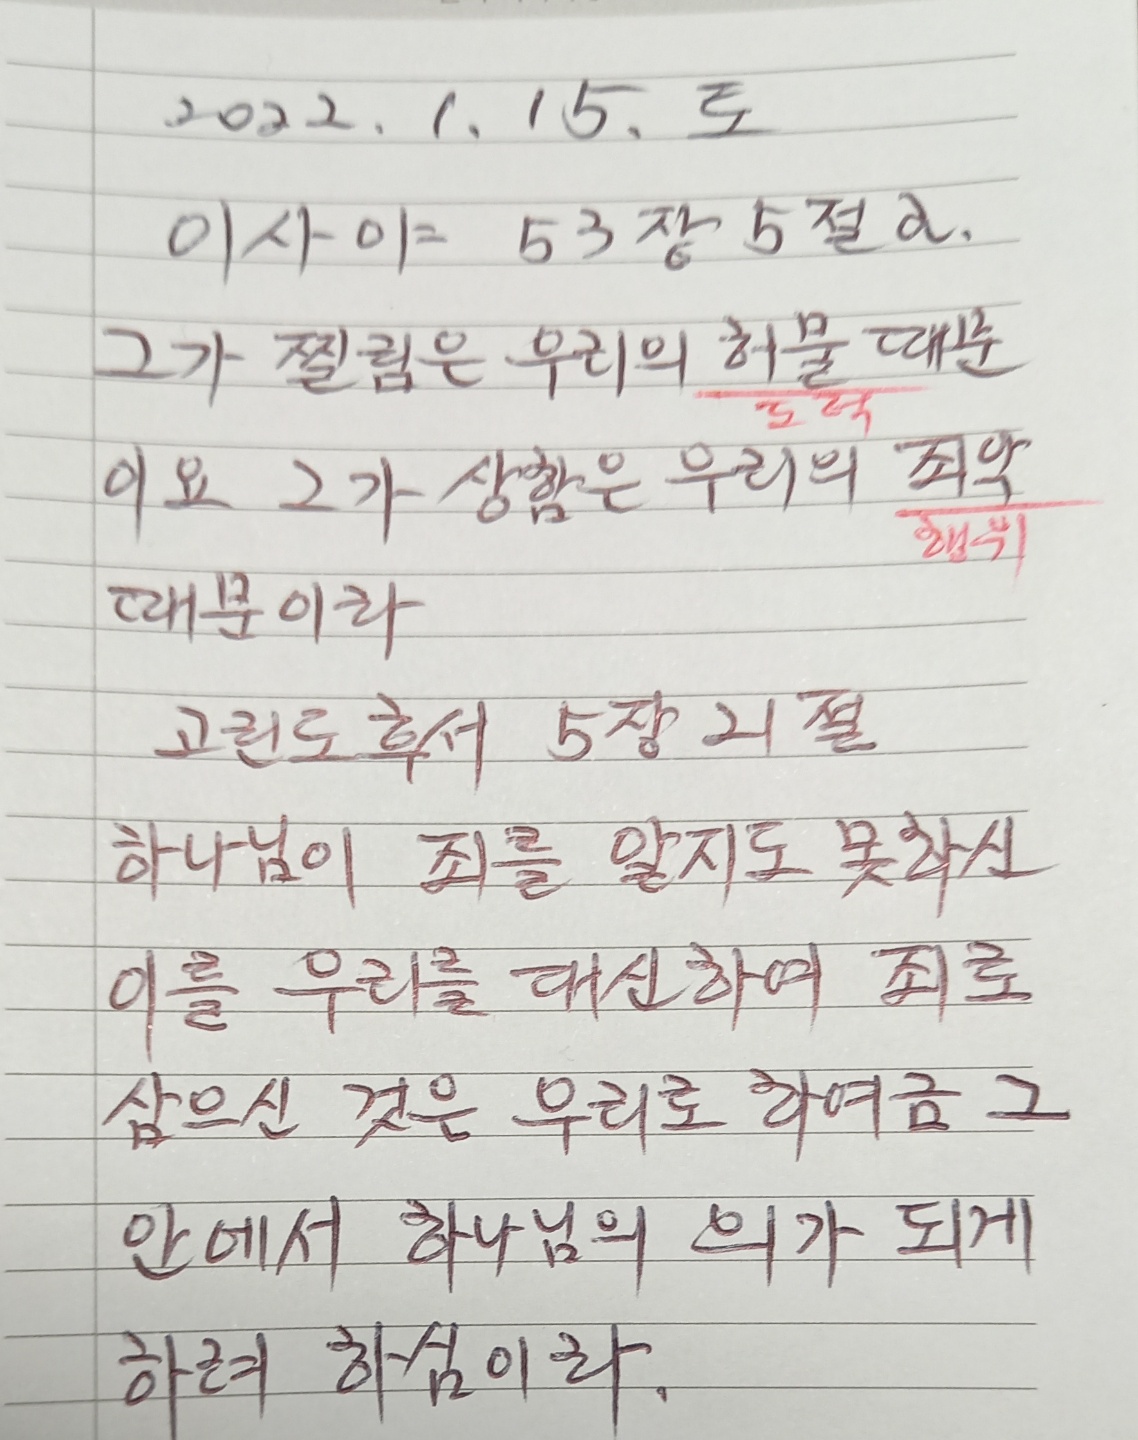 2022. 1. 15. 토
이사야 53장 5절 a.
그가 찔림은 우리의 허물 때문
도덕
이요 그가 상함은 우리의 죄악
행위
때문이라
고린도후서 5장 21절
하나님이 죄를 알지도 못하신
이를 우리를 대신하여 죄로
삼으신 것은 우리로 하여금 그
안에서 하나님의 의가 되게
하려 하심이라.